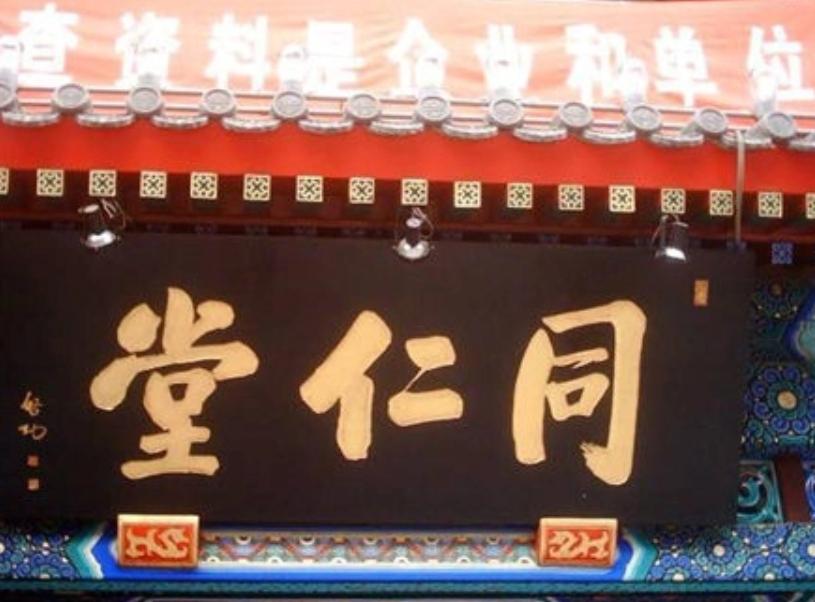 查资料是企业和单位
同仁堂
启功